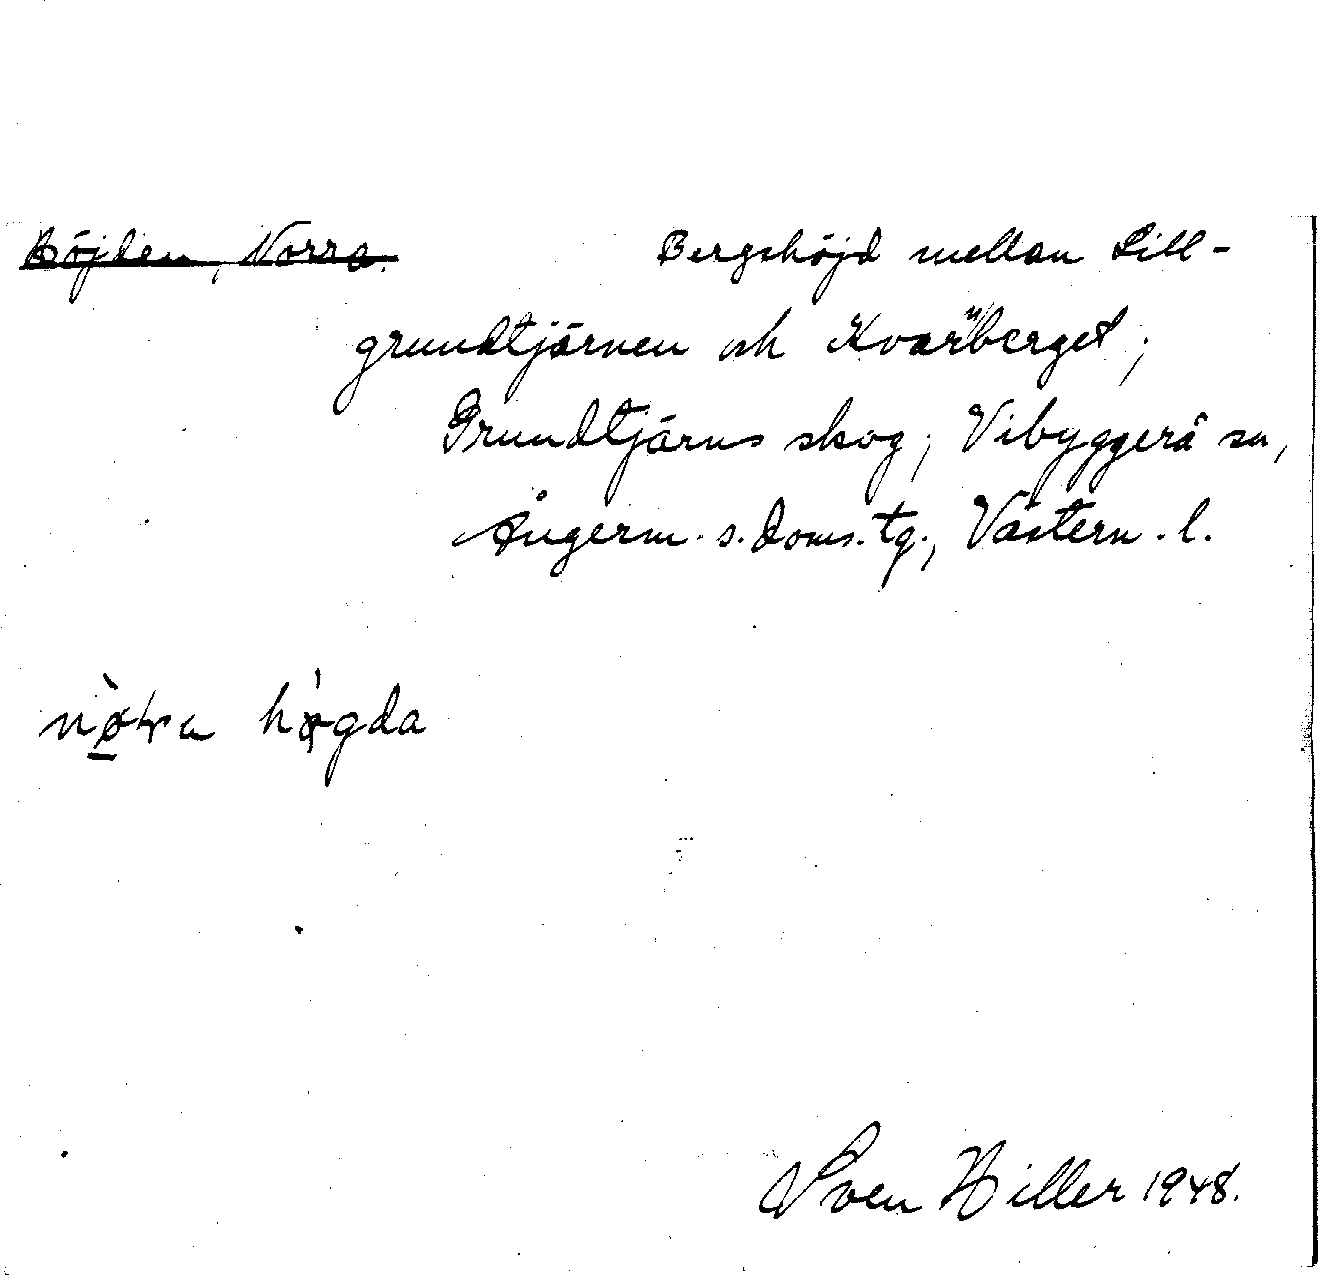 Höjden, Norra. Bergshöjd mellan Lill-
grundtjärnen och Kvarnberget,
Grundtjärns skog, Vibyggerå sn,
Ångerm. s. doms. tg., Västern. l.
högda
Sven Hiller 1948.